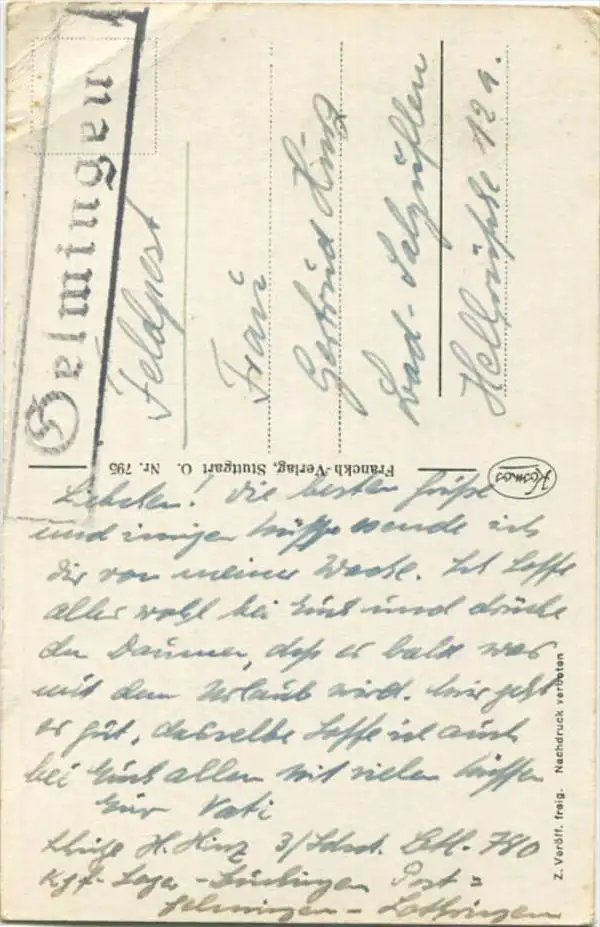 Helmingen
Feldpost
Frau
Gertrud Hinz
Bad-Salzuflen
12 a.
Kosmos
Franckh-Verlag, Stuttgart O. Nr. 795
Z. Veröff. freig. Nachdruck verboten
Liebchen! Die besten Grüße
und innigen Küsse sende ich
dir von meiner Wache. Ich hoffe
alles wohl bei Euch und drücke
den Daumen, daß es bald was
mit dem Urlaub wird. Mir geht
es gut, dasselbe hoffe ich auch
bei Euch allen. Mit vielen Küssen
Euer Vati
H. Hinz 3/Schtz. Btl. 780
Kgf-Lager - Post =
Helmingen - Lothringen